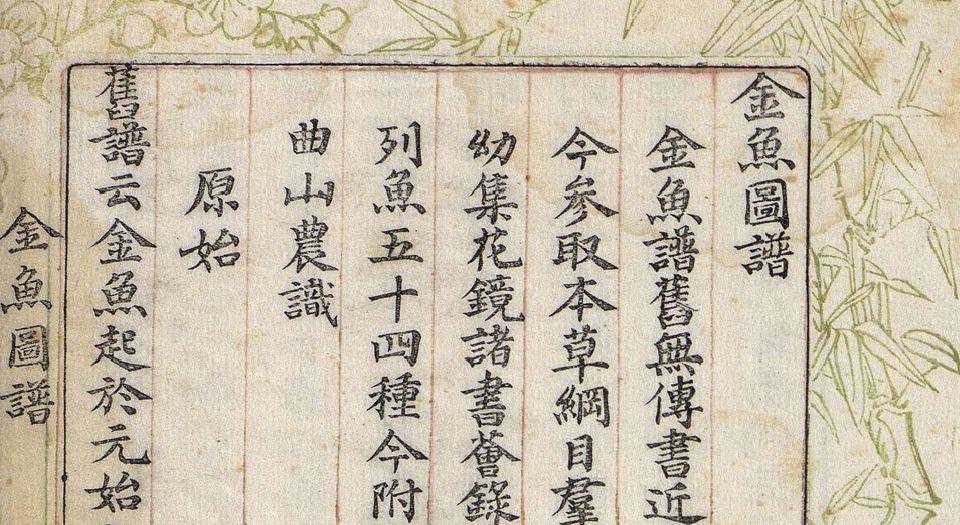 金魚圖譜
金魚譜舊無傳書近
今參取本草綱目羣
幼集花鏡諸書薈錄
列魚五十四種今附
曲山農識
原始
舊譜云金魚起於元始
金魚圖譜